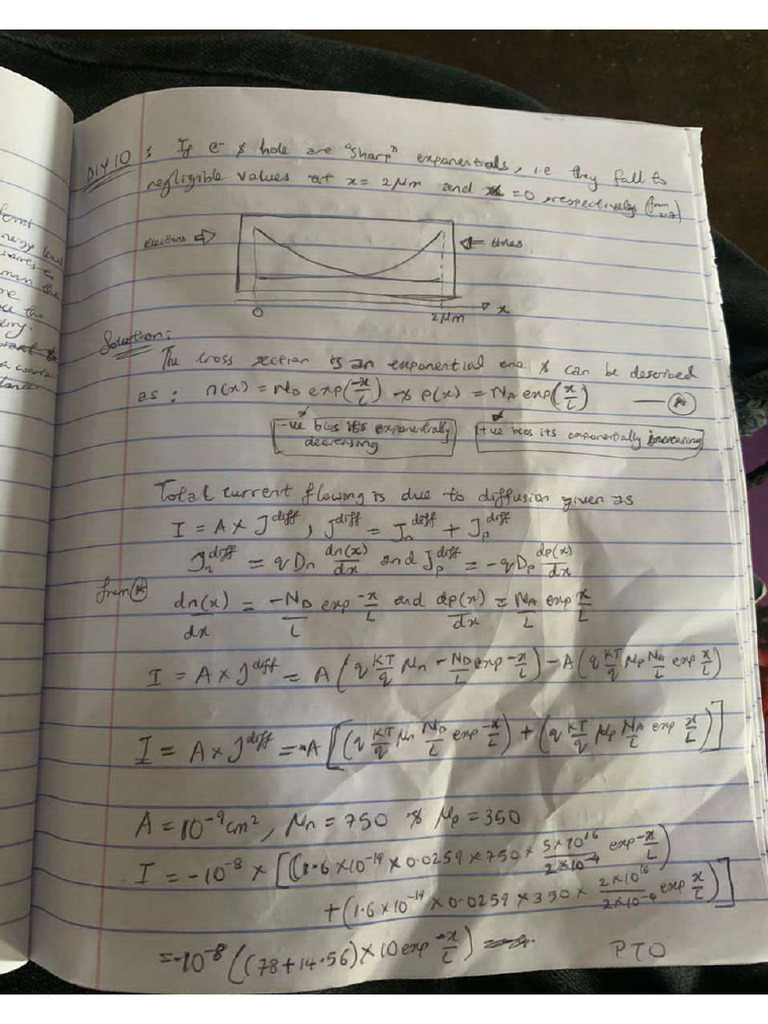 form
energy level
me
the
DIY 10 : If e- & hole are "sharp" exponentials, i.e they fall to
negligible values at x = 2μm and x=0, respectively (from
Electrons ⇒ ⇐ Holes
0 2μm x
Solution:
The cross section is an exponential one & can be described
as : n(x) = ND exp(-x/L) & p(x) = NA exp(x/L) — (A)
-ve bcos its exponentially decreasing
+ve bcos its exponentially increasing
Total current flowing is due to diffusion given as
I = A x J^diff, J^diff = Jn^diff + Jp^diff
Jn^diff = qDn dn(x)/dx and Jp^diff = -qDp dp(x)/dx
from (A)
dn(x)/dx = -ND/L exp -x/L and dp(x)/dx = NA/L exp x/L
I = A x J^diff = A(q KT/q μn -ND/L exp -x/L) - A(q KT/q μp NA/L exp x/L)
I = A x J^diff = -A[(q KT/q μn ND/L exp -x/L) + (q KT/q μp NA/L exp x/L)]
A = 10^-9 cm², μn = 750 & μp = 350
I = -10^-8 x [((1.6 x 10^-19 x 0.0259 x 750 x 5 x 10^16/2 x 10^-4 exp -x/L)
+ (1.6 x 10^-19 x 0.0259 x 350 x 2 x 10^16/2 x 10^-4 exp x/L)]
= -10^-8 ((78 + 14.56) x 10 exp -x/L)
PTO